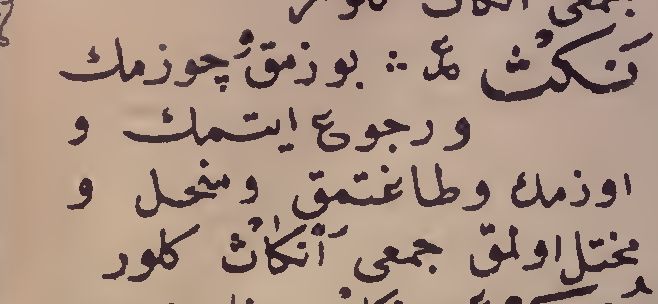 جمعى انكاث كلور
نَكْثْ ع :· بوزمق چوزمك
و رجوع ايتمك و
اوزمك و طاغتمق و منحل و
مختل اولمق جمعى اَنْكَاثْ كلور